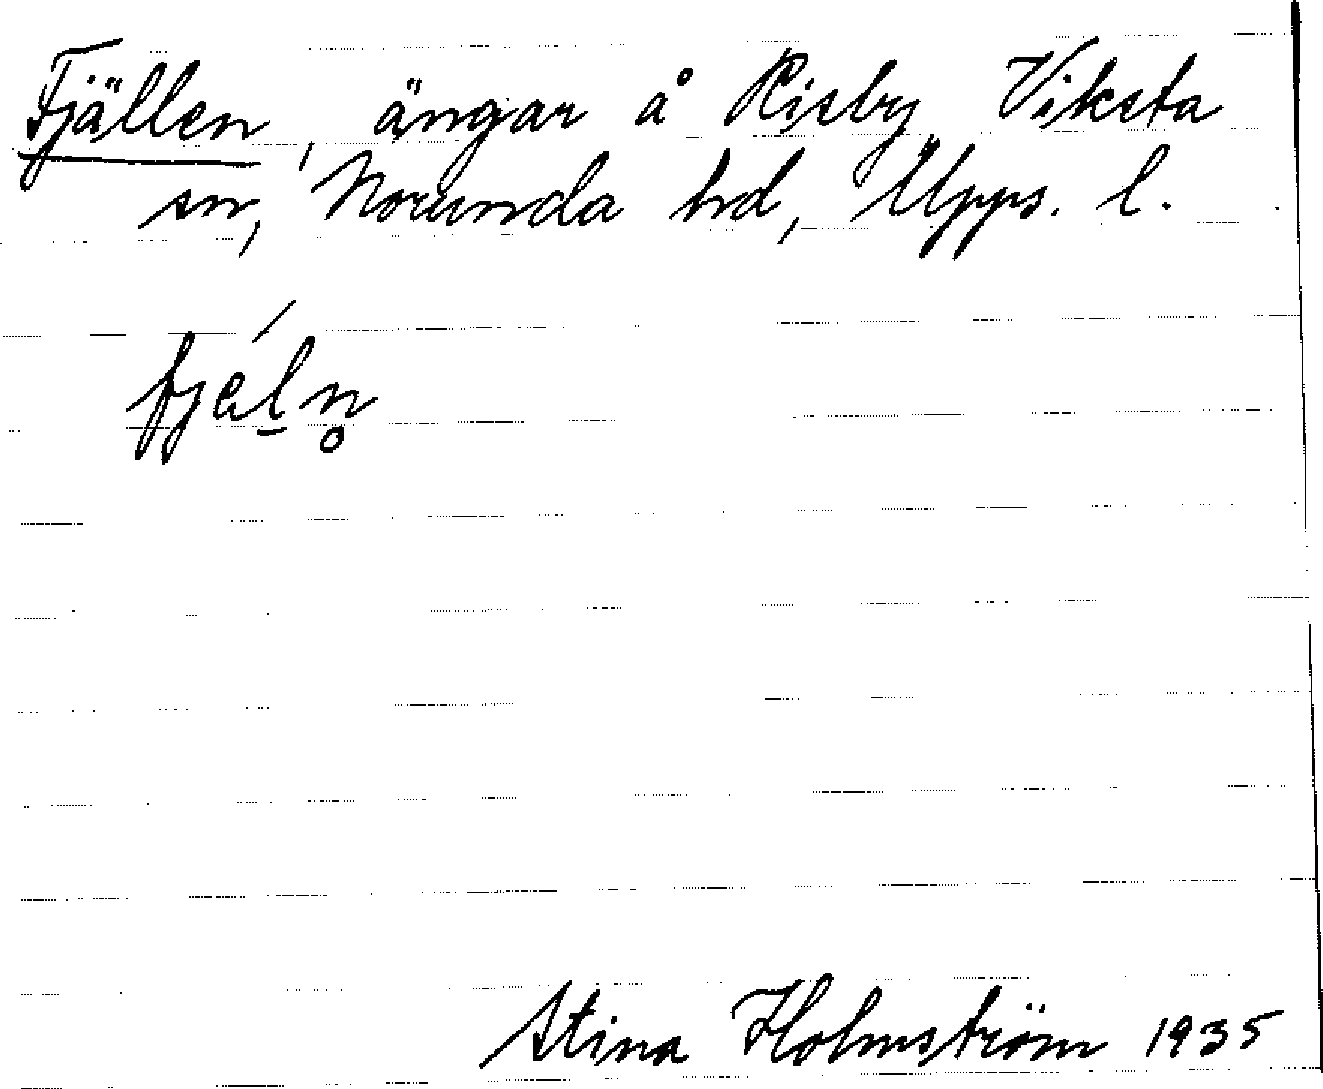 Fjällen, ängar å Risby, Viksta
sn, Norunda hd, Upps. l.
fjäḻ́n̥
Stina Holmström 1935